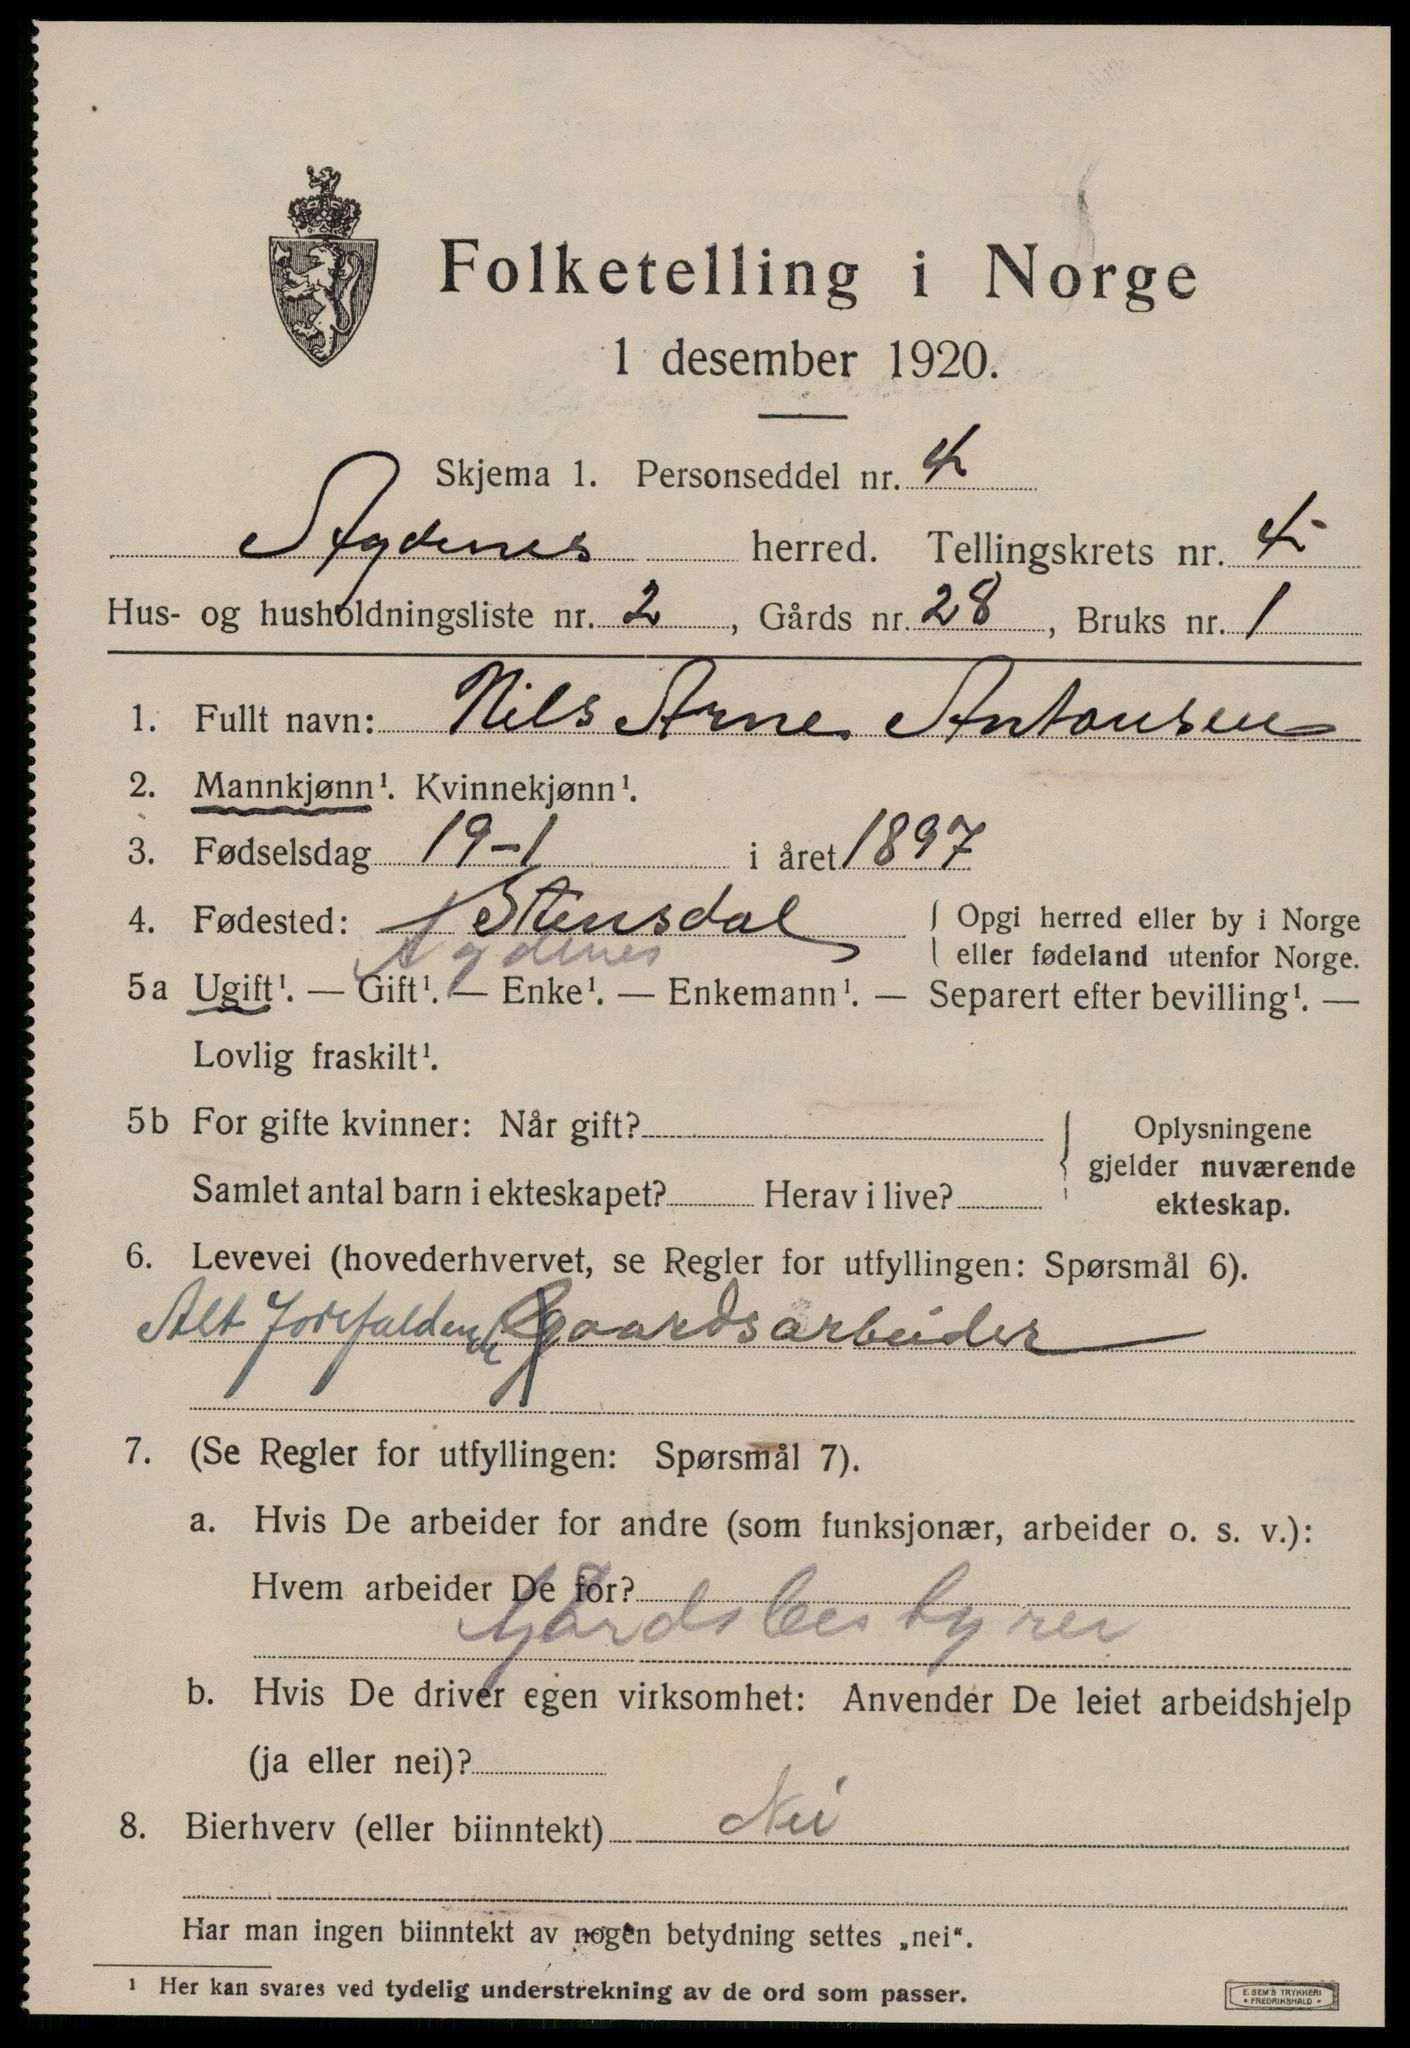 Folketelling i Norge
1 desember 1920.
Skjema 1. Personseddel nr. 4
Agdenes herred. Tellingskrets nr. 4
Hus- og husholdningsliste nr. 2, Gårds nr. 28, Bruks nr. 1
1. Fullt navn: Nils Arne Antonsen
2. Mannkjønn¹. Kvinnekjønn¹.
3. Fødselsdag 19-1 i året 1897
4. Fødested: Stensdal { Opgi herred eller by i Norge
eller fødeland utenfor Norge.
Agdenes
5a Ugift¹. — Gift¹. — Enke¹. — Enkemann¹. — Separert efter bevilling¹. —
Lovlig fraskilt¹.
5b For gifte kvinner: Når gift? { Oplysningene
gjelder nuværende
Samlet antal barn i ekteskapet? Herav i live?
ekteskap.
6. Levevei (hovederhvervet, se Regler for utfyllingen: Spørsmål 6).
Alt forefaldende gaardsarbeider
7. (Se Regler for utfyllingen: Spørsmål 7).
a. Hvis De arbeider for andre (som funksjonær, arbeider o. s. v.):
Hvem arbeider De for?
Gårdsbestyrer
b. Hvis De driver egen virksomhet: Anvender De leiet arbeidshjelp
(ja eller nei)?
8. Bierhverv (eller biinntekt) Nei
Har man ingen biinntekt av nogen betydning settes „nei“.
¹ Her kan svares ved tydelig understrekning av de ord som passer.
E. SEM'S TRYKKERI
• FREDRIKSHALD •